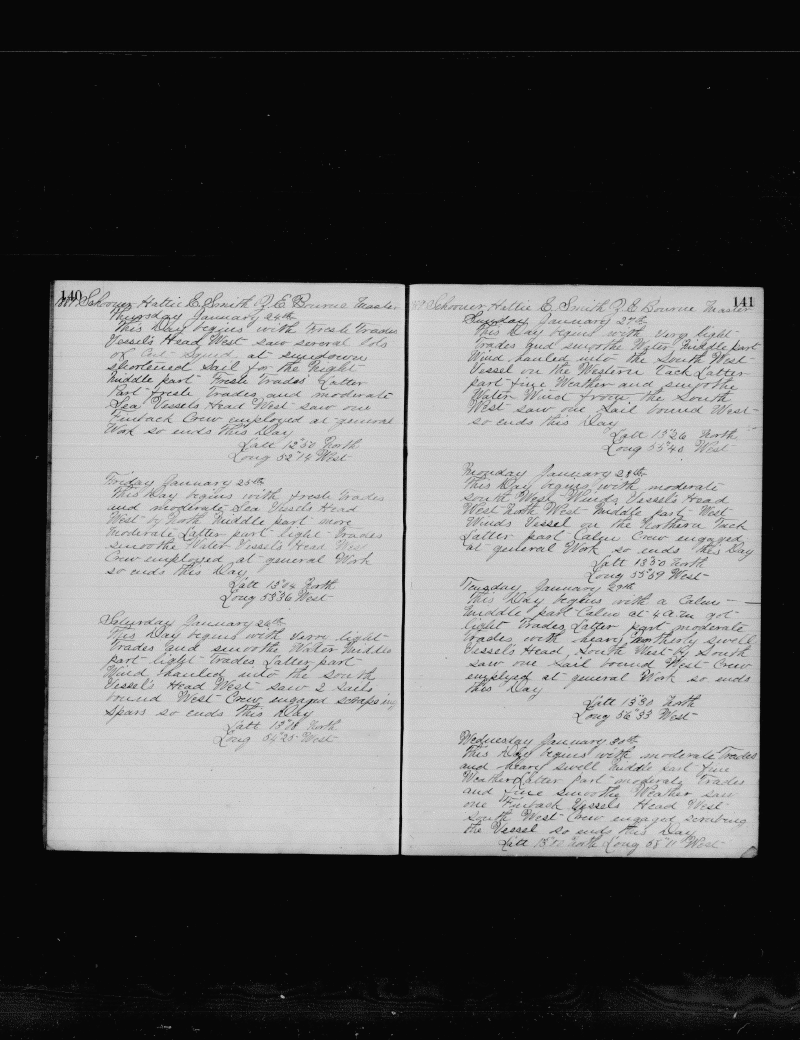 140
1889 Schooner Hattie E. Smith Z. E. Bourne Master
Thursday January 24th
This Day begins with Fresh Trades
Vessel's Head West saw several lots
of Cut Squid at sundown
shortened Sail for the Night
Middle part Fresh Trades Latter
Part fresh trades and moderate
Sea Vessels Head West saw one
Finback Crew employed at general
Work so ends this Day
Latt 12°50 North
Long 52°14 West
Friday January 25th
This Day begins with fresh Trades
and moderate Sea Vessels Head
West by North Middle part more
moderate Latter part light trades
smoothe Water Vessel's Head West
Crew employed at general Work
so ends this Day
Latt 13°04 North
Long 53°36 West
Saturday January 26th
This Day begins with very light
trades and smoothe Water Middle
part light trades Latter part
Wind hauled into the South
Vessel's Head West saw 2 Sails
bound West Crew engaged scraping
Spars so ends this Day
Latt 13°18 North
Long 54°25 West
141
1889 Schooner Hattie E. Smith Z E Bourne Master
Sunday January 27th
This Day begins with very light
Trades and smoothe Water Middle part
Wind hauled into the South West
Vessel on the Western Tack Latter
part fine Weather and smoothe
Water Wind from the South
West saw one Sail bound West
so ends this Day
Latt 13°26 North
Long 55°40 West
Monday January 28th
This Day begins with moderate
South West Winds Vessel's Head
West North West Middle part West
Winds Vessel on the Northern Tack
Latter part Calm Crew engaged
at general Work so ends this Day
Latt 13°50 North
Long 55°59 West
Tuesday January 29th
This Day begins with a Calm
Middle part Calm at 4 a.m got
light Trades Latter part moderate
Trades with heavy Northerly swell
Vessel's Head South West by South
saw one sail bound West Crew
employed at general Work so ends
this Day
Latt 13°30 North
Long 56°33 West
Wednesday January 30th
This Day begins with moderate Trades
and heavy swell Middle part fine
Weather Latter part moderate Trades
and fine smoothe Weather saw
one Finback Vessels Head West
South West Crew engaged scrubing
the Vessel so ends this Day
Latt North Long 58°11 West